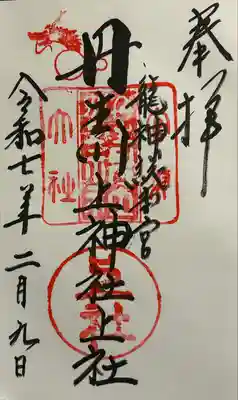 奉拝
龍神総本宮
丹生川上神社上社
令和七年二月九日
大社